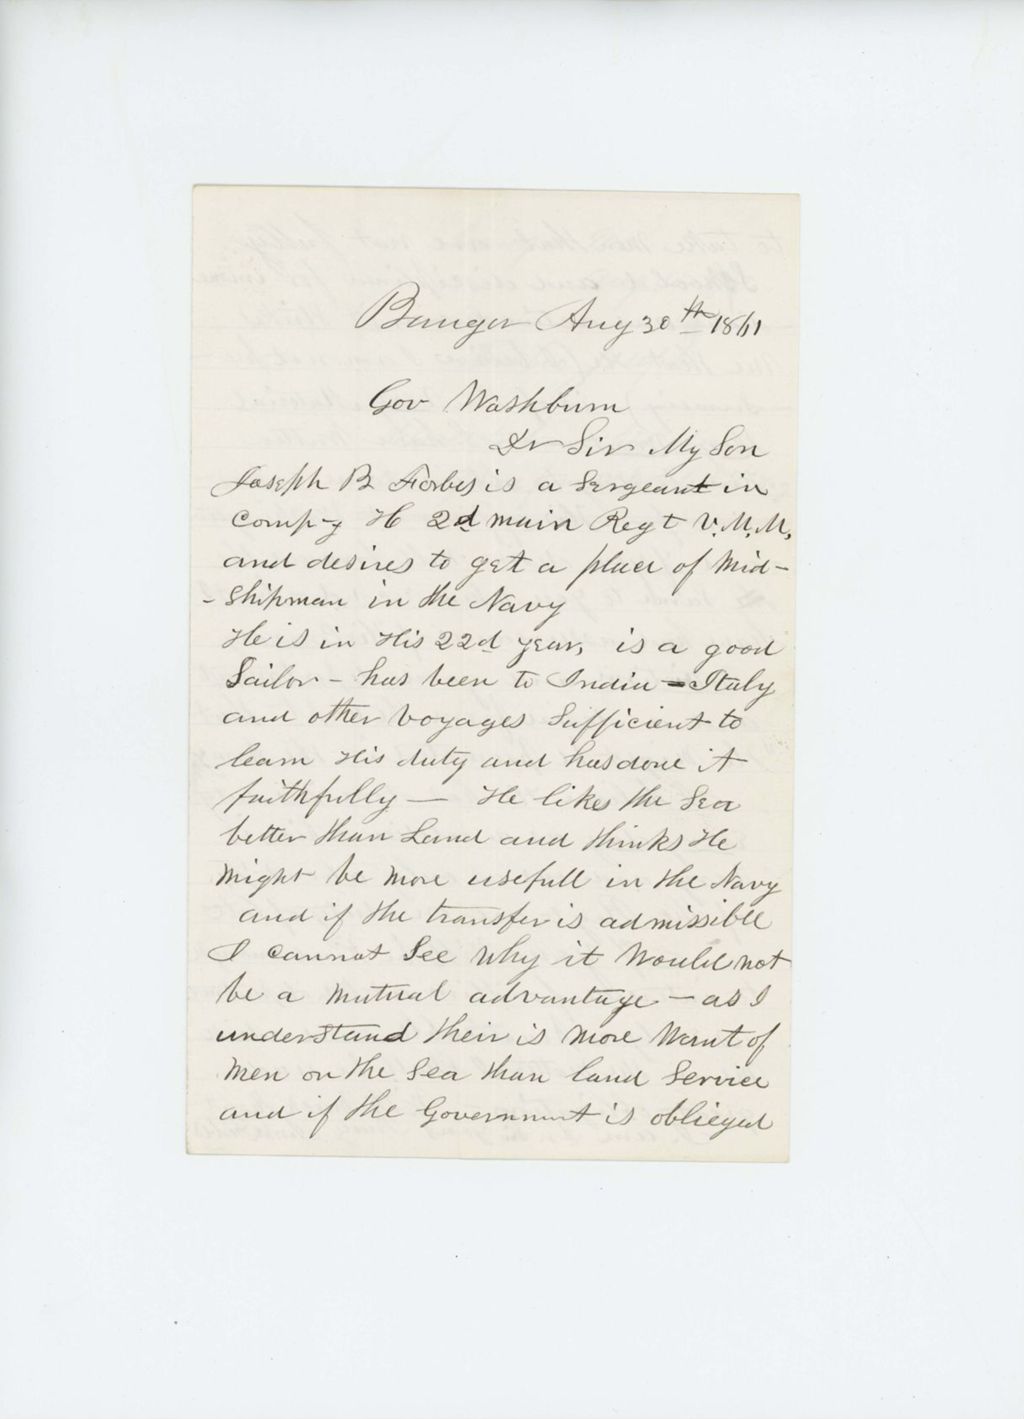 Bangor Aug 30th 1861
Gov Washburn
Dr Sir My Son
Joseph B Forbes is a Sergeant in
Comp-y H 2d main Regt V. M. M,
and desires to get a place of Mid-
-shipman in the Navy
He is in His 22d year, is a good
Sailor - has been to India - Italy
and other voyages Sufficient to
learn His duty and has done it
faithfully — He likes the Sea
better than Land and thinks He
might be more usefull in the Navy
and if the transfer is admissible
I cannot See why it Would not
be a mutual advantage - as I
understand their is more Want of
Men on the Sea than land Service
and if the Government is oblieged